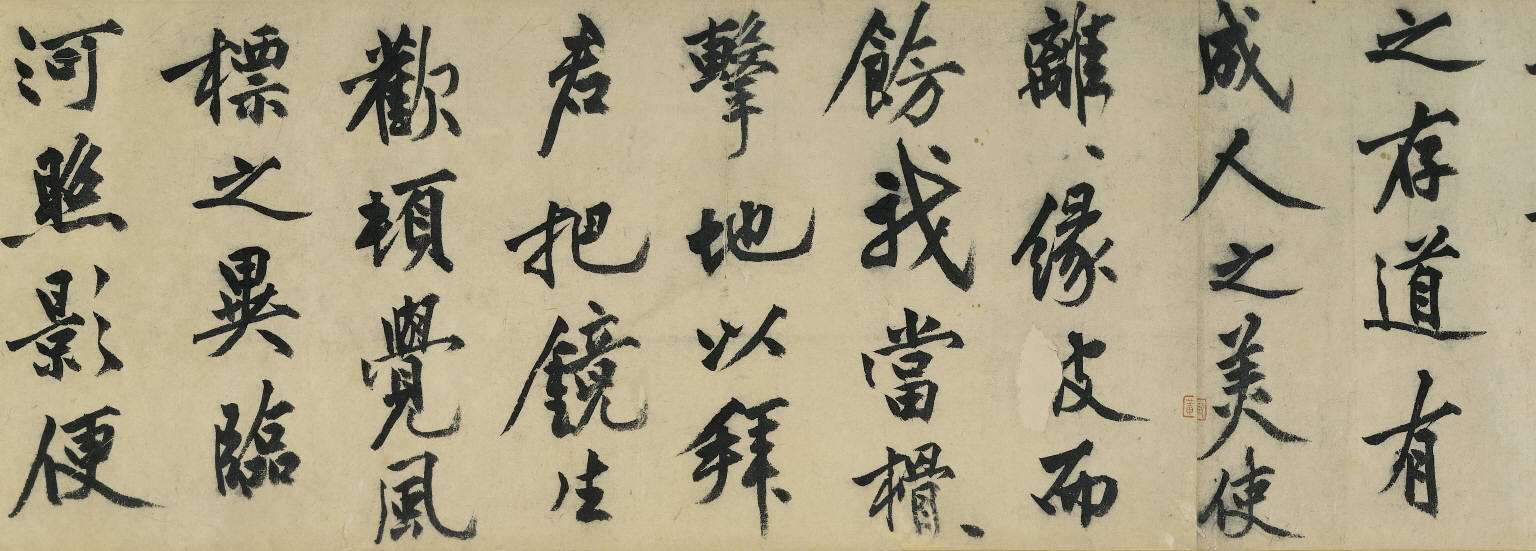 之存道有
成人之美使
離、緣皮而
餝我當榾、
擊地以拜
君把鏡生
歡頓覺風
標之異臨
河照影便